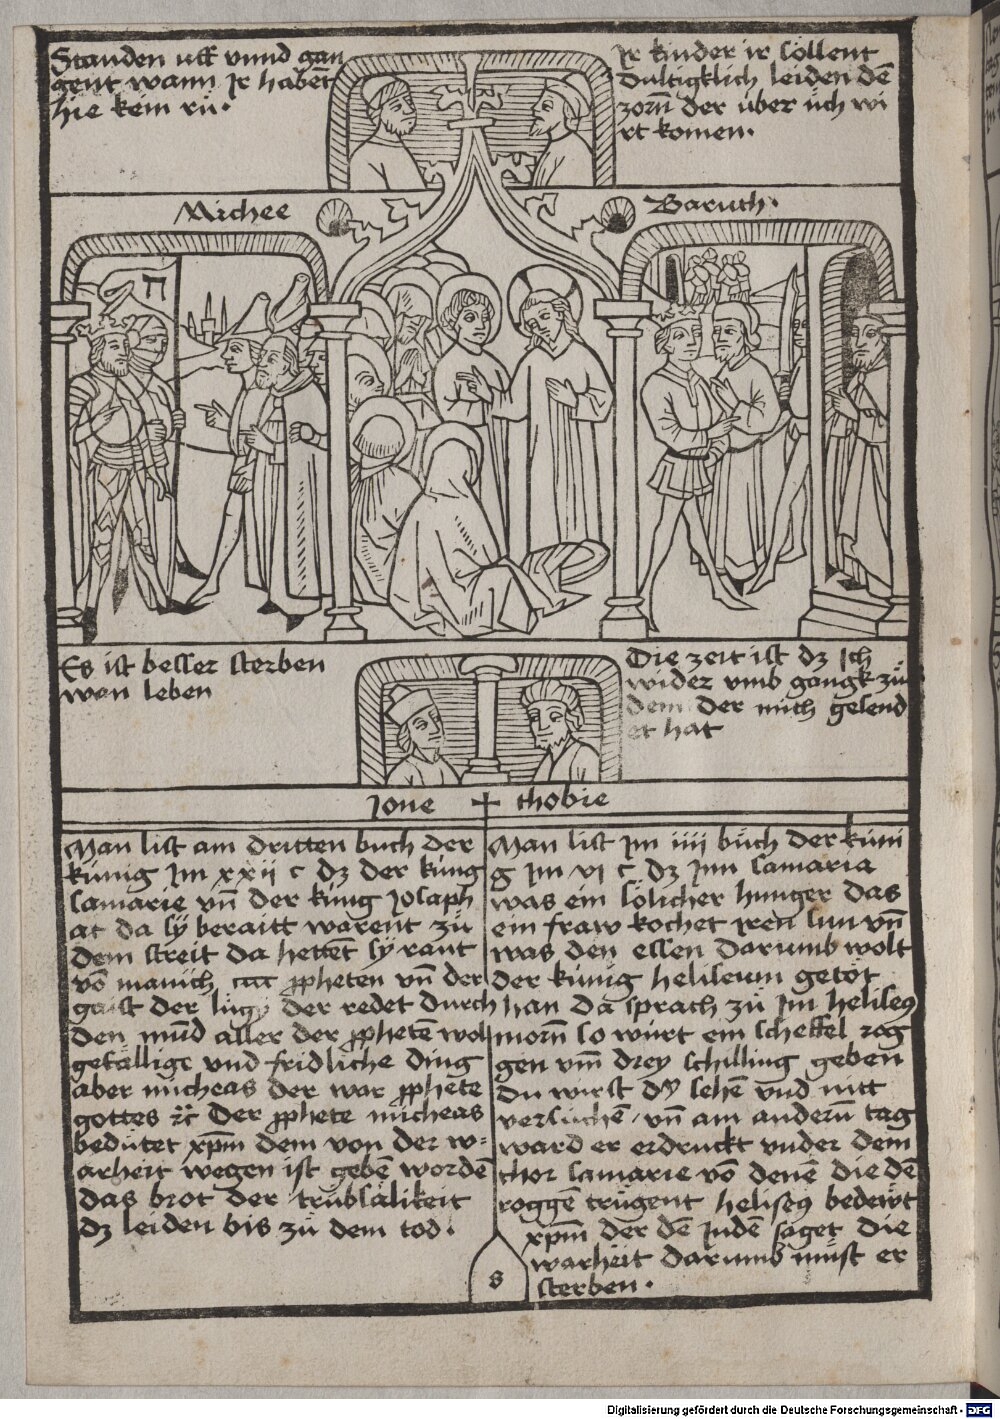 Standen uff vnnd gan
gent wann Ir habet
hie kein rů.
Ir kinder ir söllent
dultigklich leiden dē
zorn̄ der über üch wi
rt komen.
Michee
Baruth.
Es ist besser sterben
wan leben
Die zeit ist dz Ich
wider vmb gangk zů
dem der mich gesend
et hat
Jone + thobie
Man list am dritten buch der
künig Im xxii c dz der king
samarie vn̄ der king Josaph
at da sÿ beraitt warent zů
dem streit da hettēt sÿ rant
vō manich ꝓpheten vn̄ der
gaist der lugÿ der redet durch
den mūd aller der ꝓphetē wol
gefällige vnd fridliche ding
aber micheas der war ꝓphete
gottes ꝛc̄ der ꝓphete micheas
bedütet xp̄m dem von der w=
arheit wegen ist gebē wordē
das brot der trübsälikeit
dz leiden bis zů dem tod.
Man list Im iiii bůch der küni
g Im vi c dz Inn samaria
was ein sölicher hunger das
ein fraw kochet iren sun vn̄
was den essen darumb wolt
der künig heliseum getöt
han da sprach zů Im heliseꝰ
morn̄ so würt ein scheffel rog
gen vm̄ drey schilling geben
du wirst dÿ sehē vnd nit
versůchē vn̄ am andern̄ tag
ward er erdruckt vnder dem
thor samarie vō denē die dē
roggē trůgent heliseꝰ bedeüt
xp̄m der dē Judē saget die
warheit darumb můst er
sterben.
s
Digitalisierung gefördert durch die Deutsche Forschungsgemeinschaft - DFG